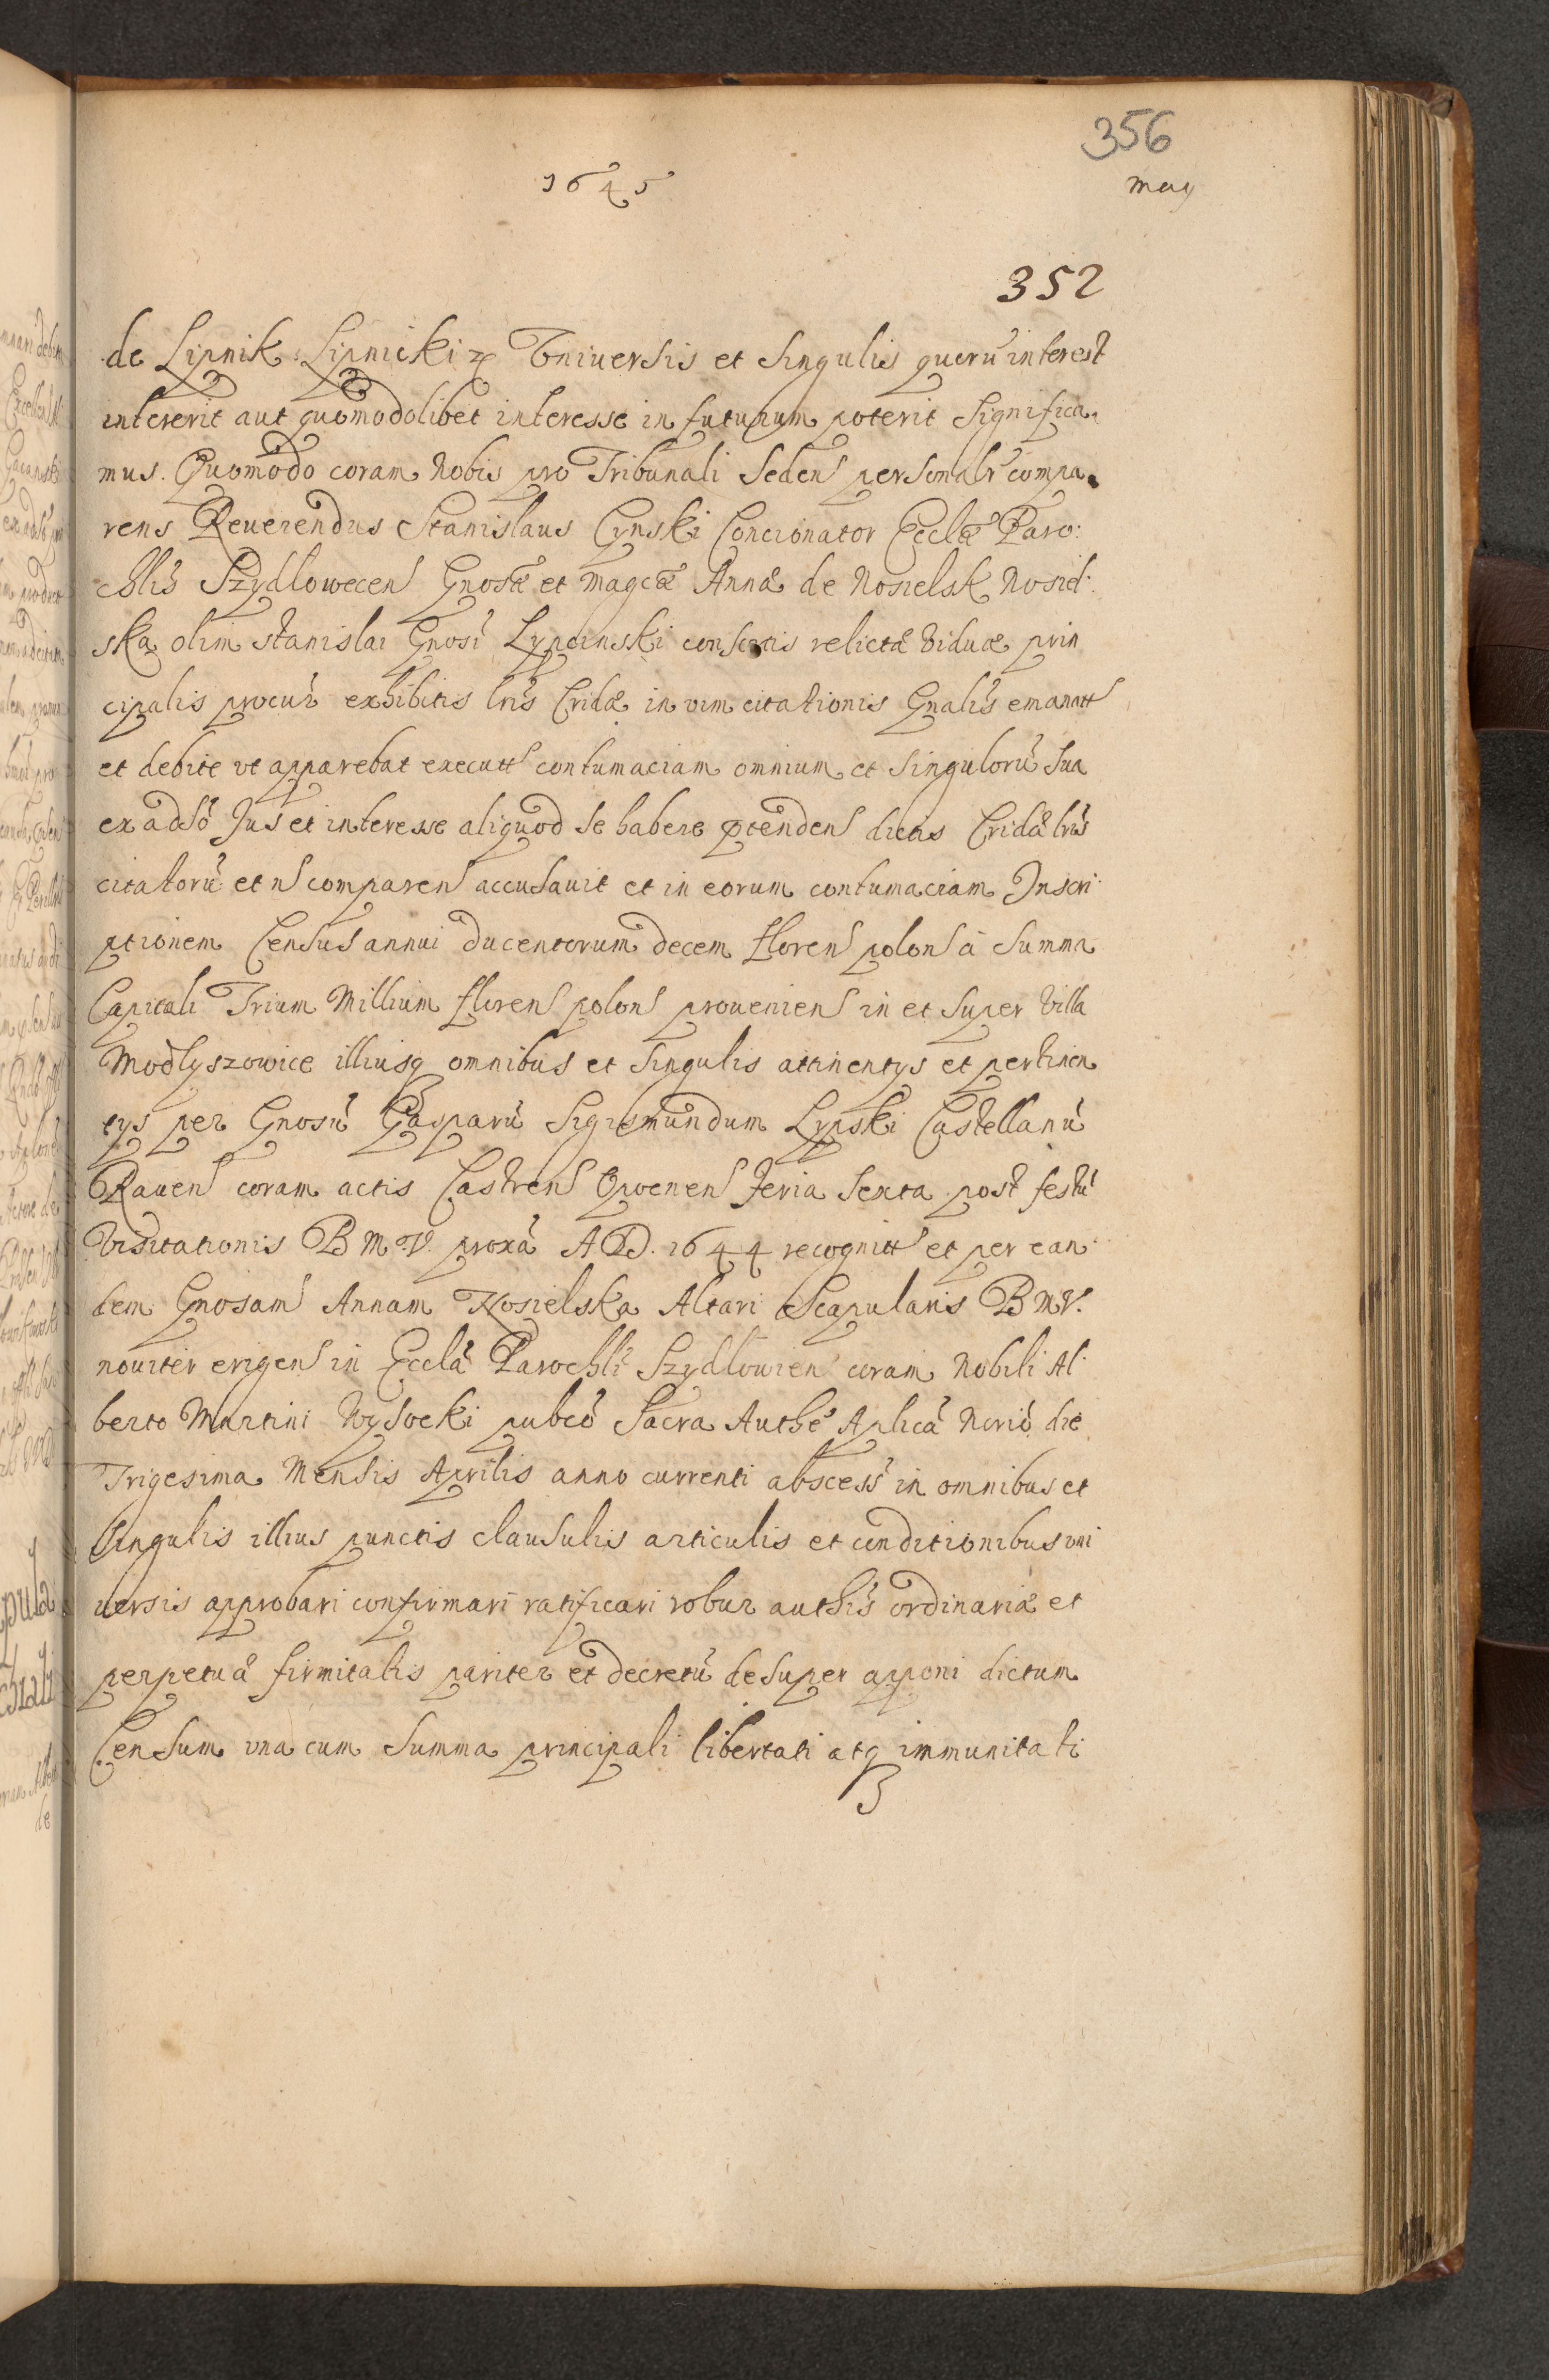 356
1645
May
352
de Lipnik Lipnicki Vniuersis et Singulis quorū interest
intererit aut quomodolibet interesse in futurum poterit Significa-
mus. Quomodo coram Nobis pro Tribunali Seden personalr compa-
rens Reuerendus Stanislaus Cynski Concionator Ecclæ Paro:
chlis Szydlowecen Gnosæ et Magcæ Annæ de Nosielsk Nosiel:
ska olim Stanislai Gnosi Lypcinski consortis relictæ Viduæ prin
cipalis procur exhibitis lris Cridæ in vim citationis Gnalis emanatt
et debite vt apparebat executt contumaciam omnium et Singulorū Sua
ex adsō Jus et interesse aliquod se habere ptenden dictas Cridæ lris
citatorū et n comparen accusauit et in eorum contumaciam Inscri-
ptionem Census annui ducentorum decem floren polon à Summa
Capitali Trium Millium floren polon prouenien in et super Villa
Modlyszowice illiusq omnibus et Singulis attinentys et pertinen
tys per Gnosū Gasparū Sigismundum Lypski Castellanū
Rauen coram actis Castren Opocnen feria Sexta post festū
Visitationis B M. V. proxā A D. 1644 recognitt et per ean
dem Gnosam Annam Nosielska Altari Scapularis B M V.
nouiter erigen in Ecclā Parochli Szydlowien coram Nobili Al-
berto Martini Wysocki pubcō Sacra Authē Aplicā Nōriō die
Trigesima Mensis Aprilis anno currenti abscess in omnibus et
Singulis illius punctis clausulis articulis et conditionibus vni
uersis approbari confirmari ratificari robur authis ordinariæ et
perpetuæ firmitatis pariter et decretū desuper apponi dictum
Censum vna cum Summa principali libertati atq immunitati